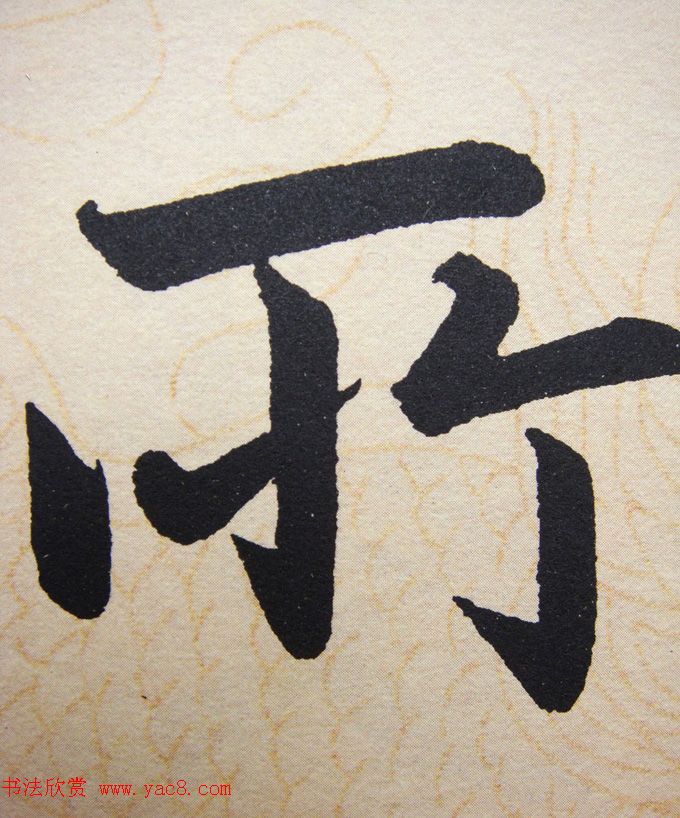 所
书法欣赏 www.yac8.com